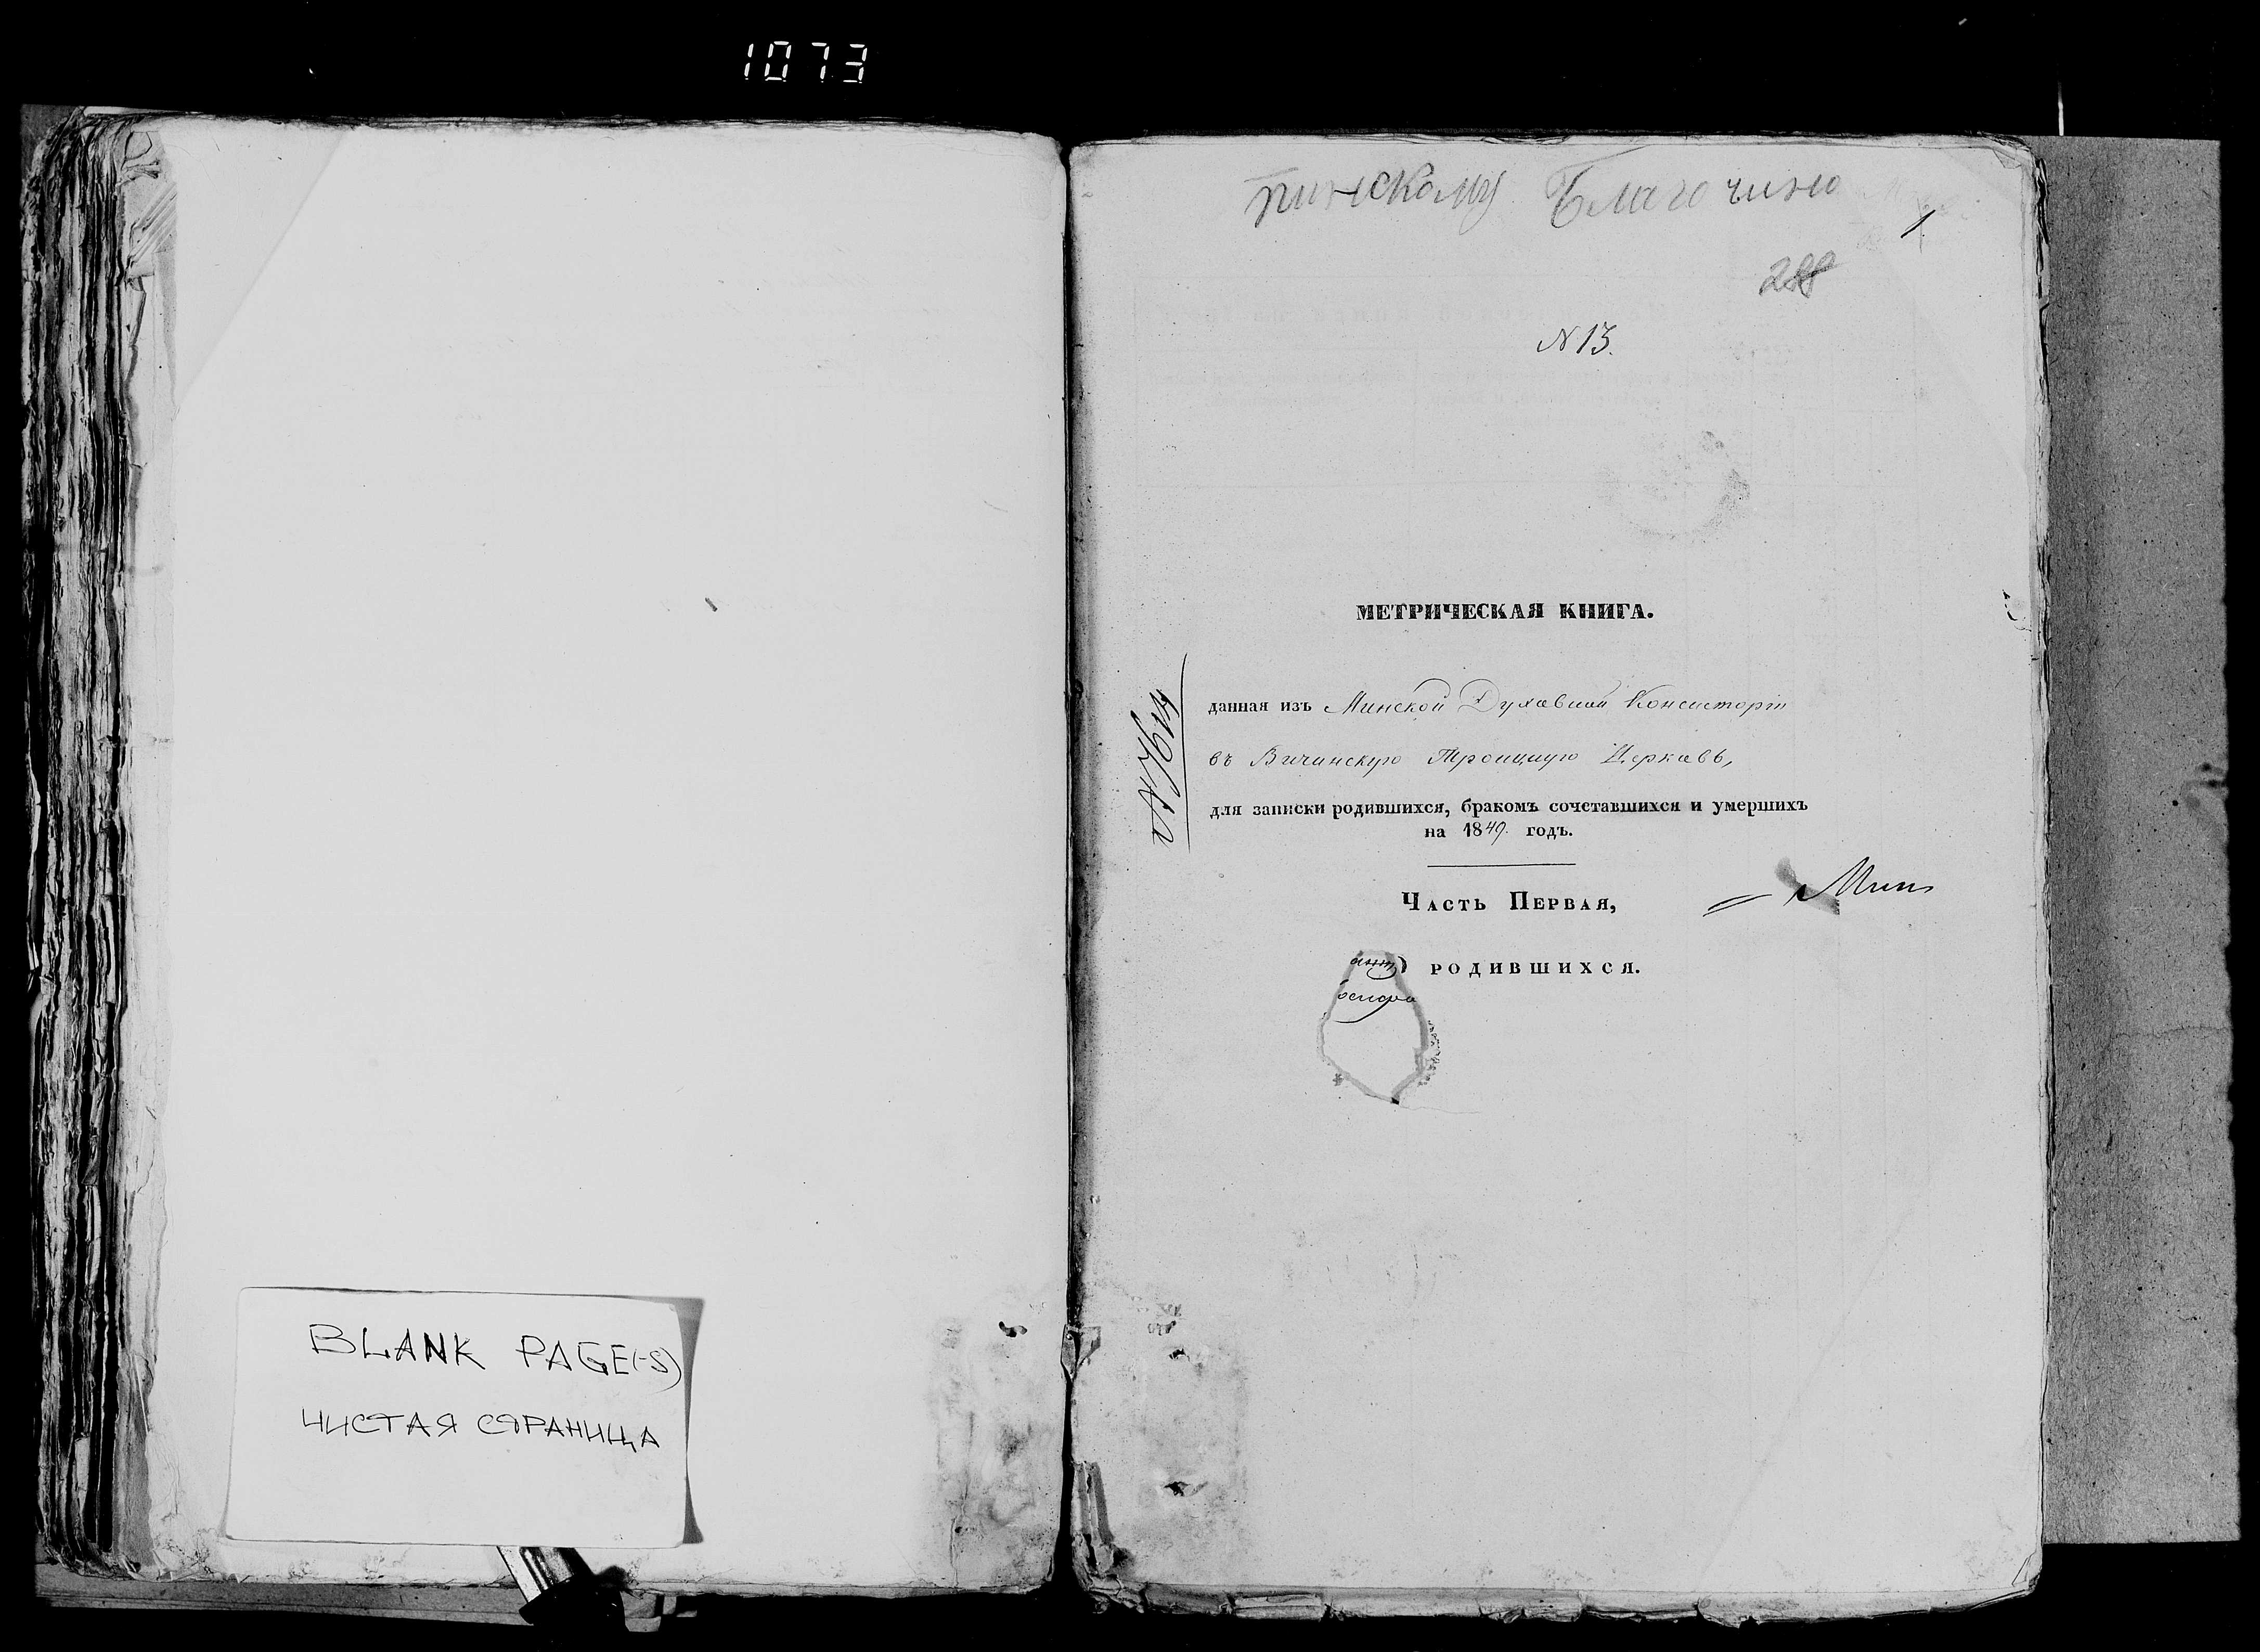 1073
BLANK PAGE(-S)
ЧИСТАЯ СТРАНИЦА
пинскому Благочинію
1
N 13.
МЕТРИЧЕСКАЯ КНИГА.
данная изъ Минской Духовной Консисторіи
въ Вичинскую Троицкую Церковь,
для записки родившихся, бракомъ сочетавшихся и умершихъ
на 1849. годъ.
Часть Первая,
родившихся.